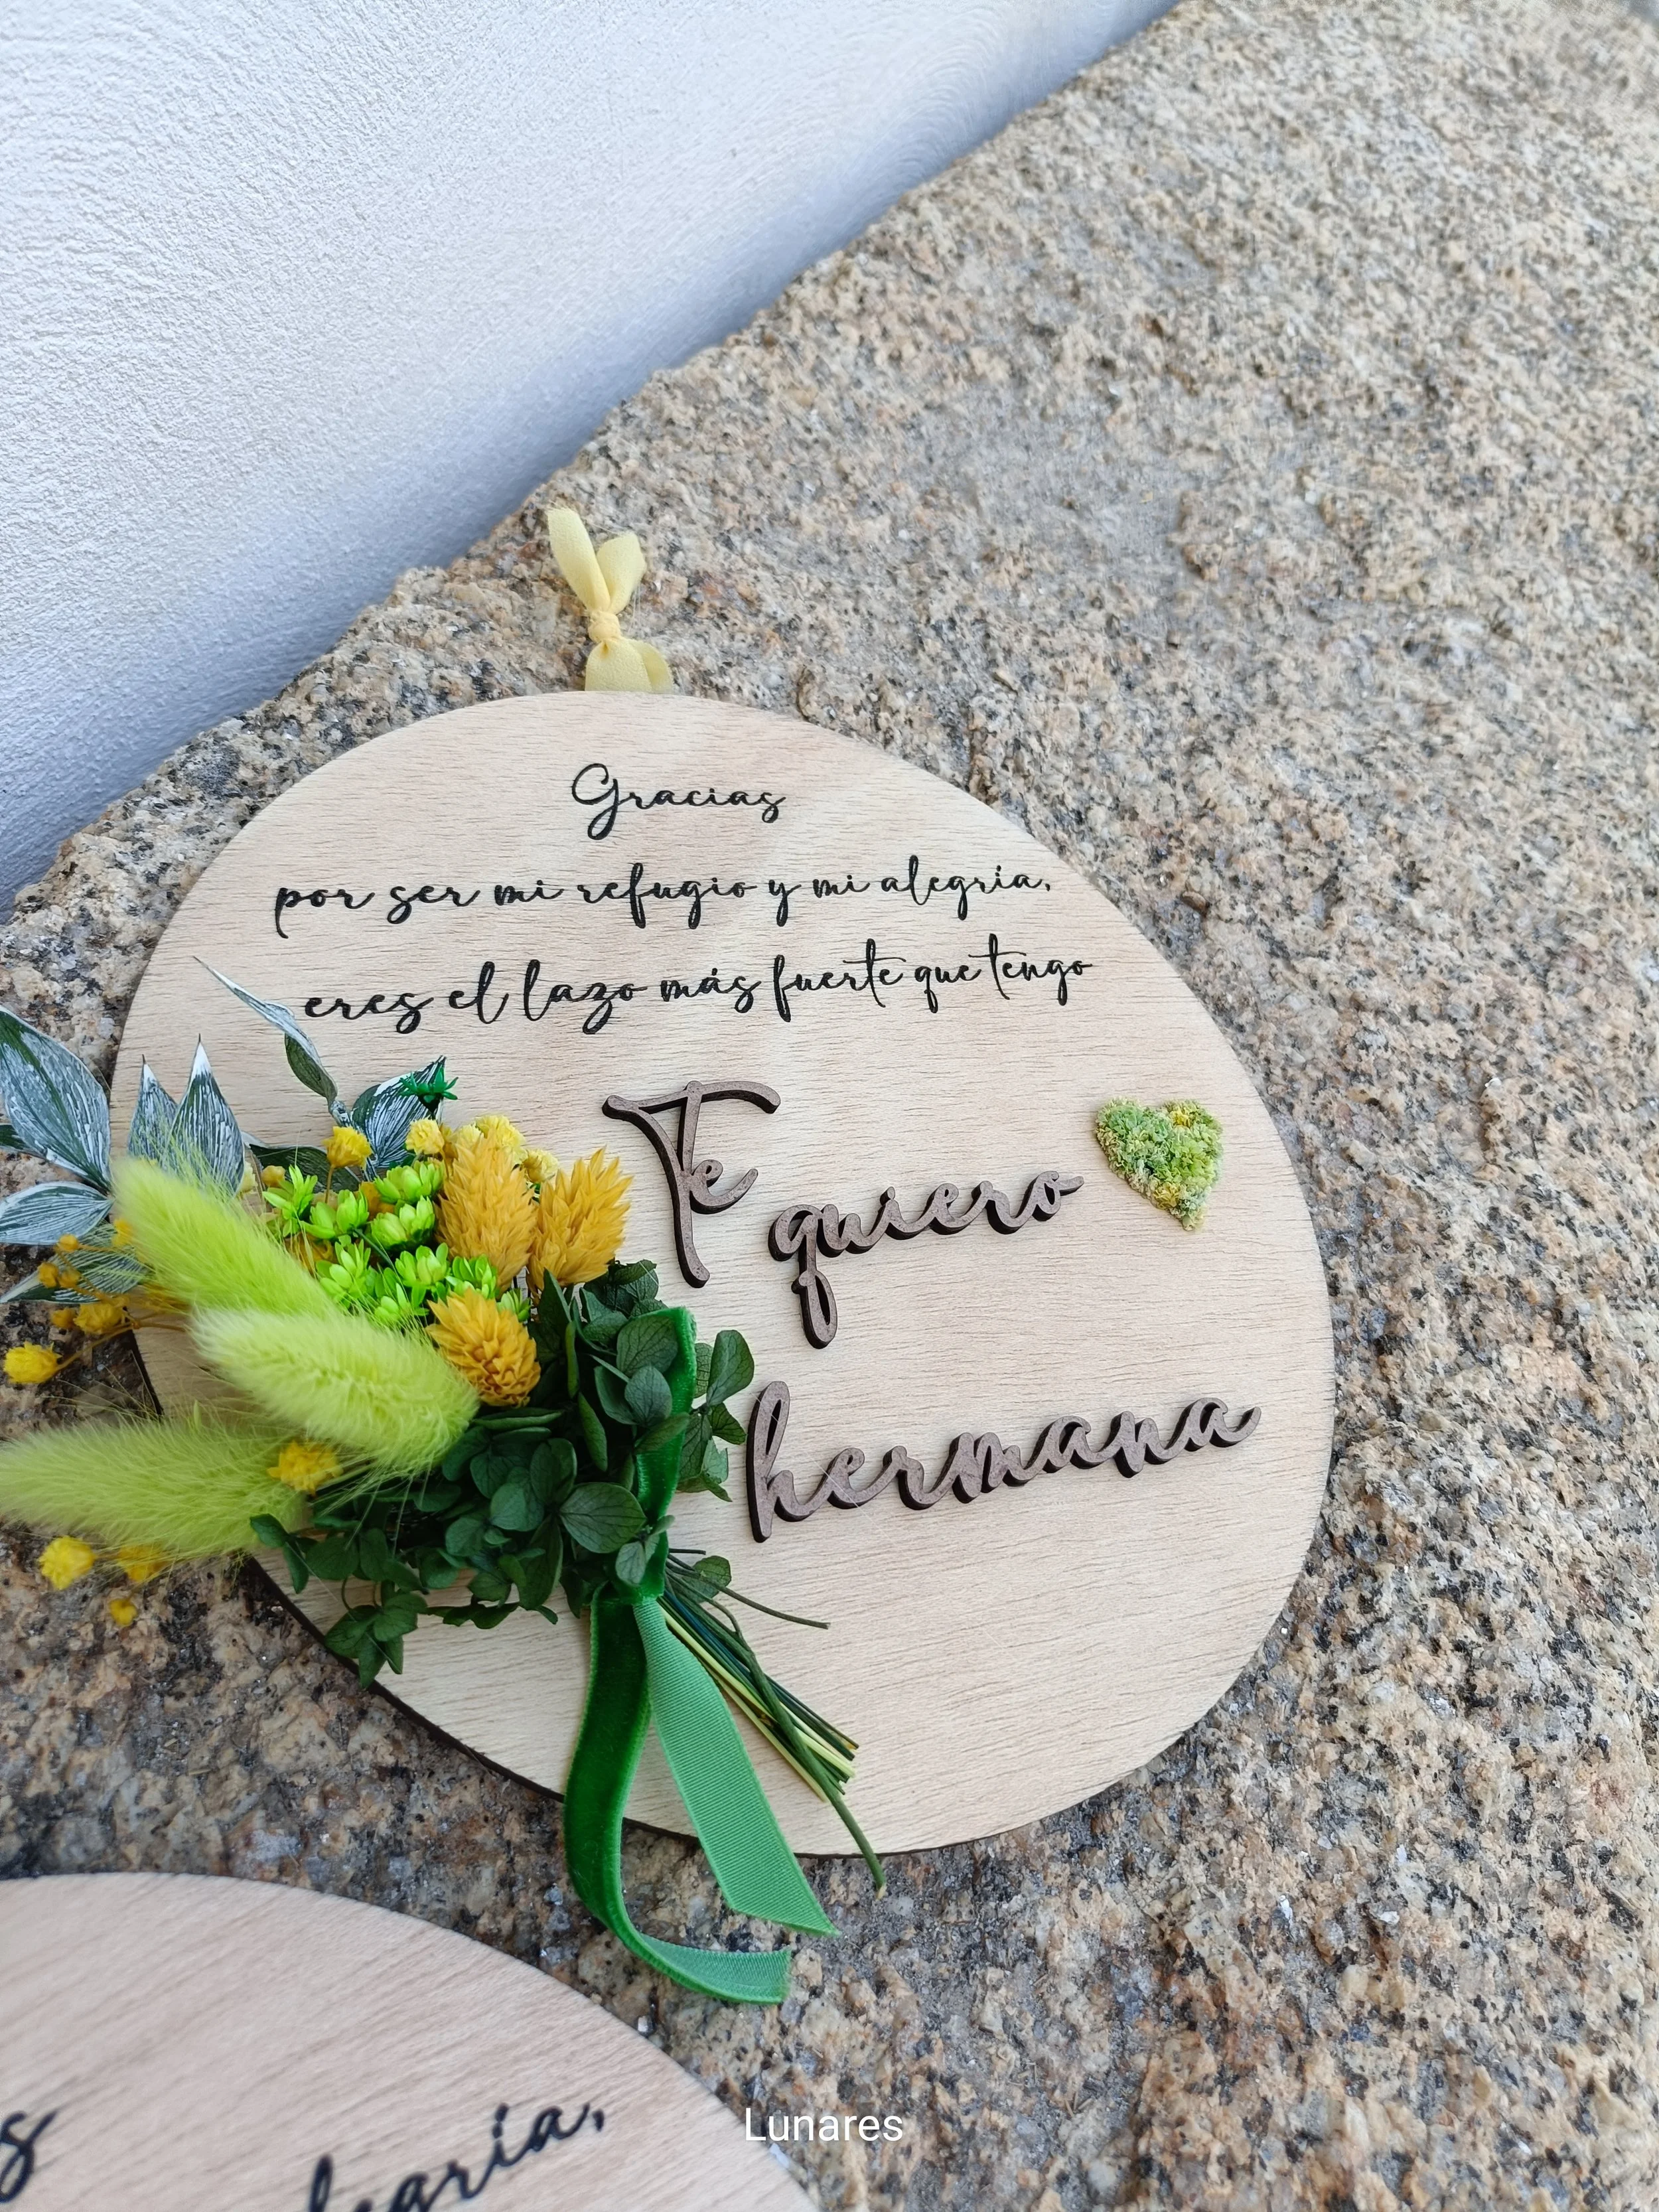 Gracias
por ser mi refugio y mi alegría,
eres el lazo más fuerte que tengo
Te
quiero
hermana
alegría,
Lunares